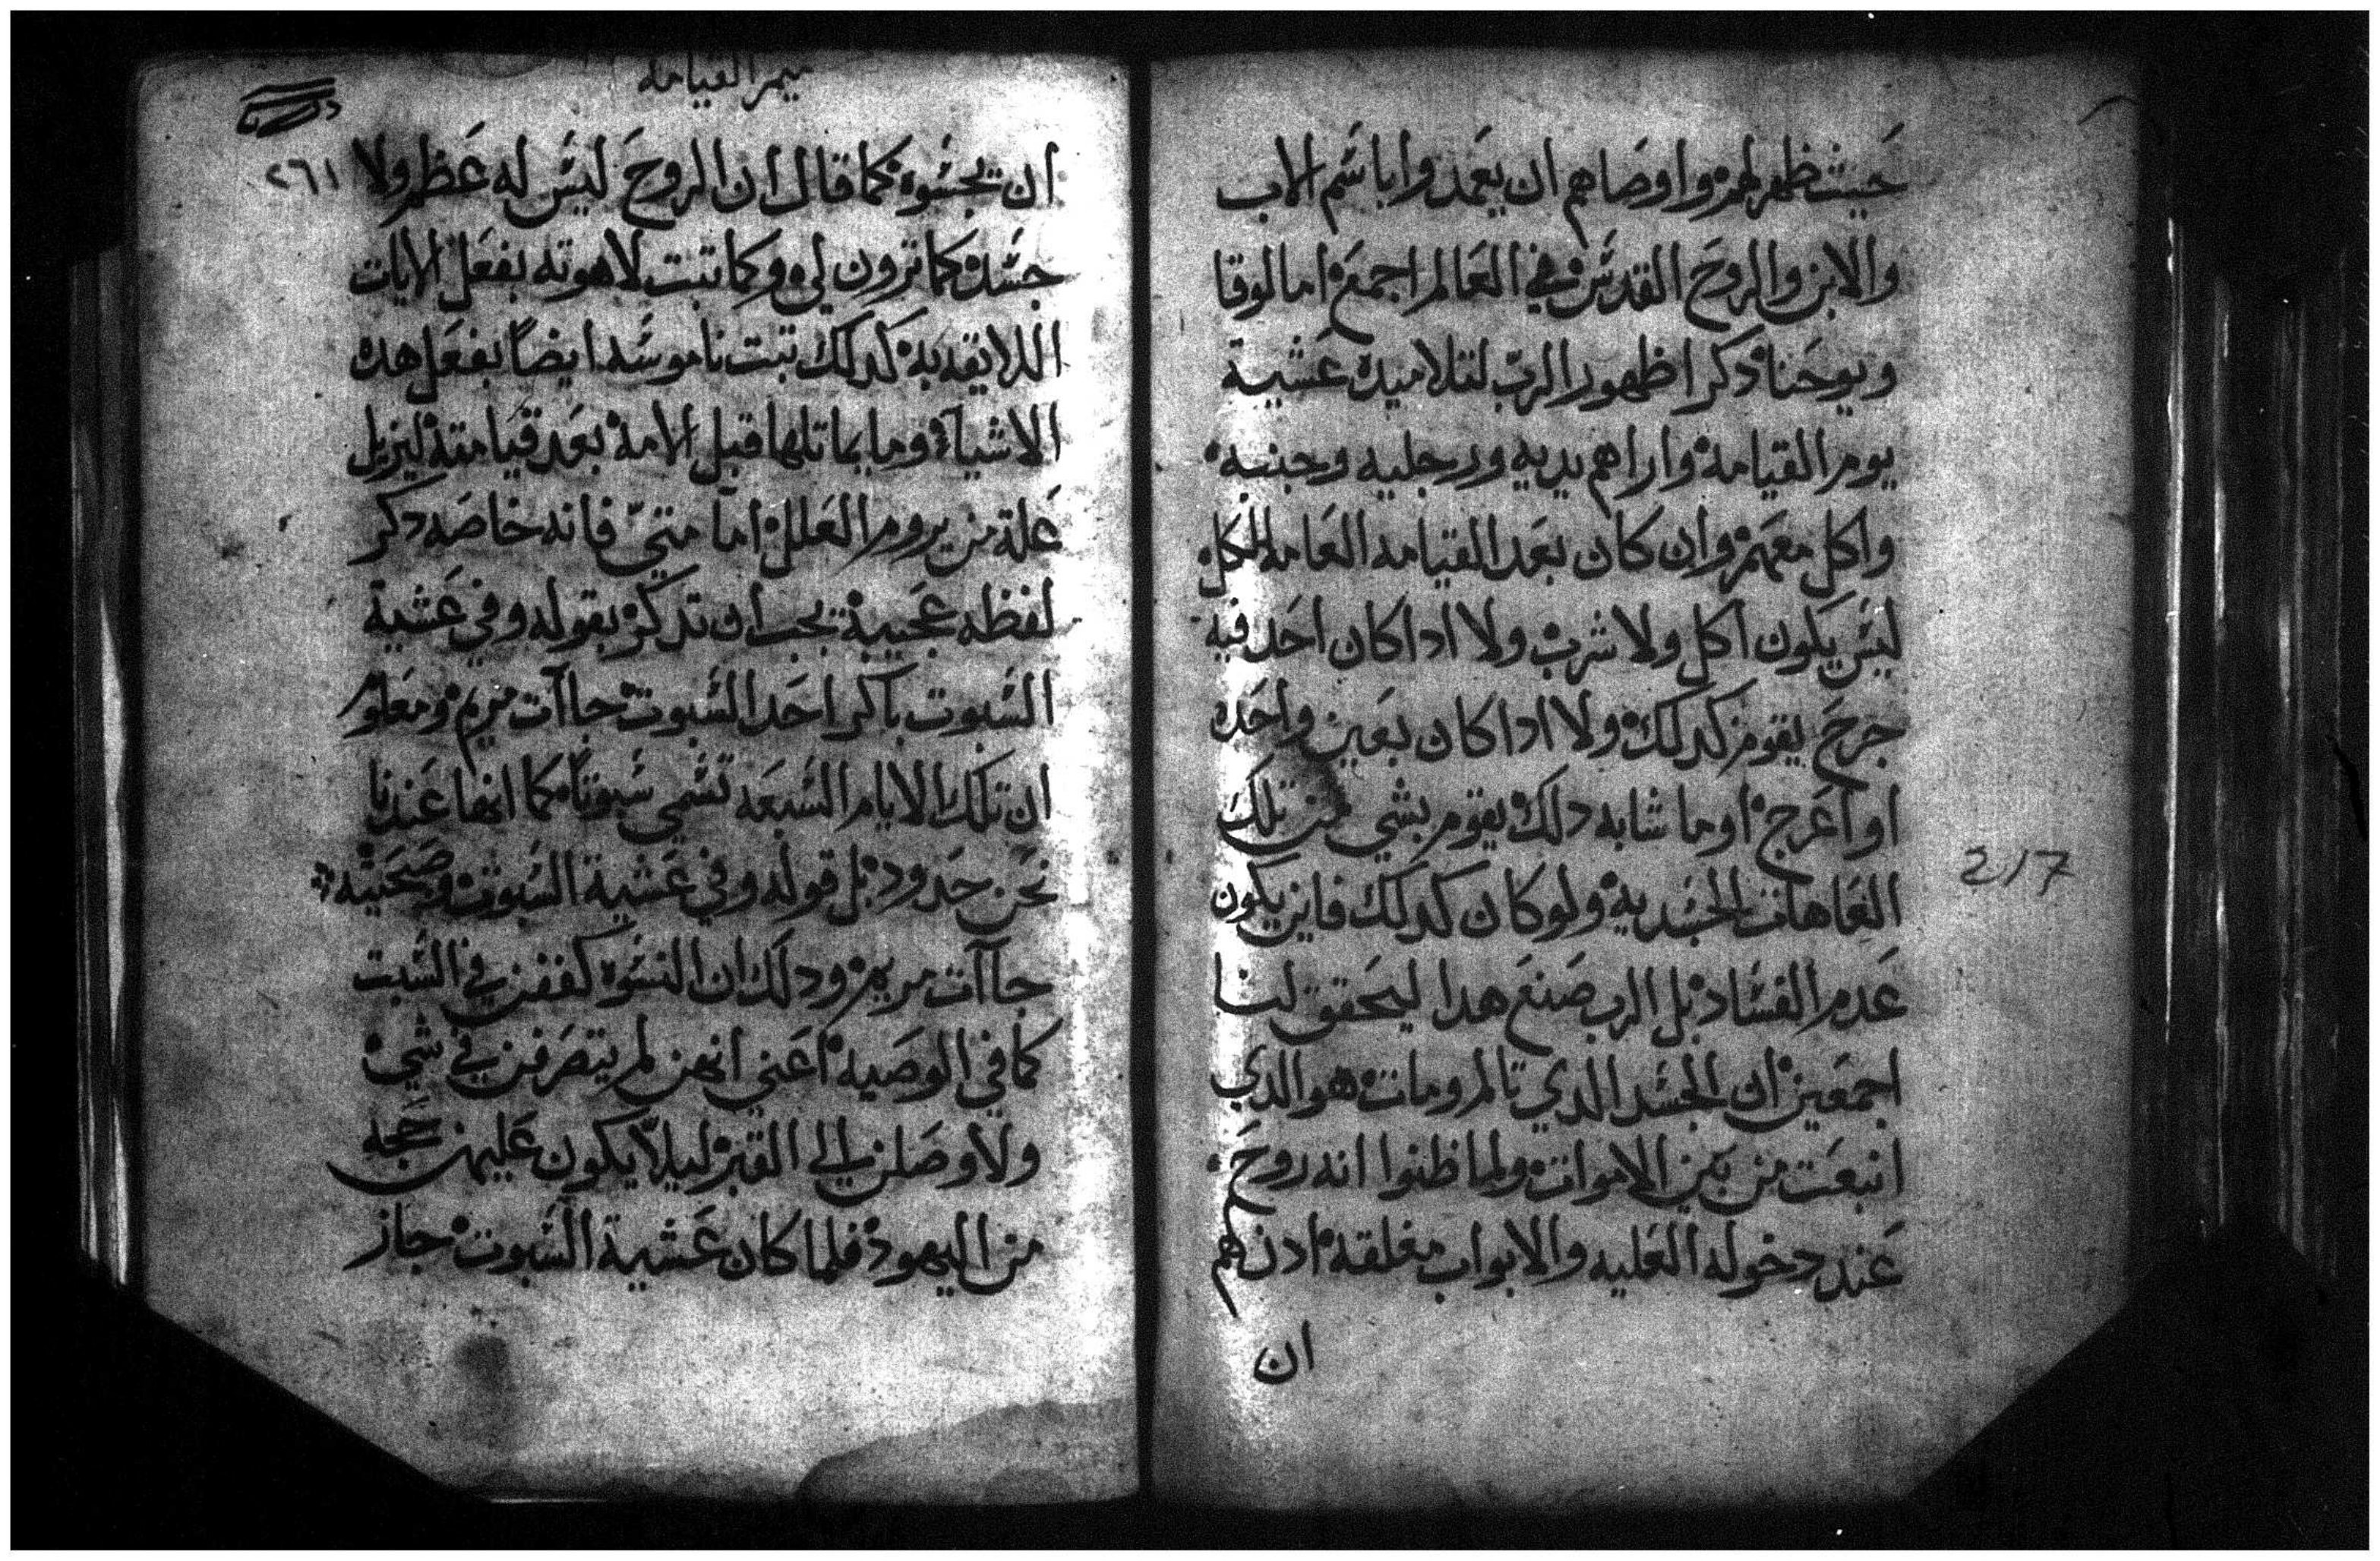 حيث ظهر لهم واوصاهم ان يعمدوا باسم الاب
والابن والروح القدس في العالم اجمع اما لوقا
ويوحنا دكرا ظهور الرب لتلاميده عشية
يوم القيامة واراهم يديه ورجليه وجنبه
واكل معهم وان كان بعد القيامه العامه للكل
ليس يكون اكل ولا شرب ولا ادا كان احد فيه
جرح يقوم كدلك ولا ادا كان بعين واحده
او اعرج او ما شابه دلك يقوم بشي من تلك
العاهات الجسديه ولو كان كدلك فاين يكون
عدم الفساد بل الرب صنع هدا ليحقق لنا
اجمعين ان الجسد الدي تالم ومات هو الدي
انبعت من بين الاموات ولما ظنوا انه روح
عند دخوله العليه والابواب مغلقه ادن هم
ان
217
ميمر القيامه
٢٦١
ان يجسوه كما قال ان الروح ليس له عظم ولا
جسد كما ترون لي وكما تبت لاهوته بفعل الايات
اللايقه به كدلك تبت ناسوته ايضاً بفعل هده
الاشياء وما يماتلها قبل الامه بعد قيامته ليزيل
علة من يروم العلل اما متي فانه خاصه دكر
لفظه عجيبة يجب ان تدكر بقوله وفي عشية
السبوت باكر احد السبوت جاات مريم ومعلوم
ان تلك الايام السبعه تسمي سبوتاً كما انها عندنا
نحن حدود بل قوله وفي عشية السبوت وصحيته
جاات مريم ودلك ان النسوه كففن في السبت
كما في الوصيه اعني انهن لم يتصرفن في شي
ولا وصلن الي القبر ليلا يكون عليهن حجه
من اليهود فلما كان عشية السبوت جاز